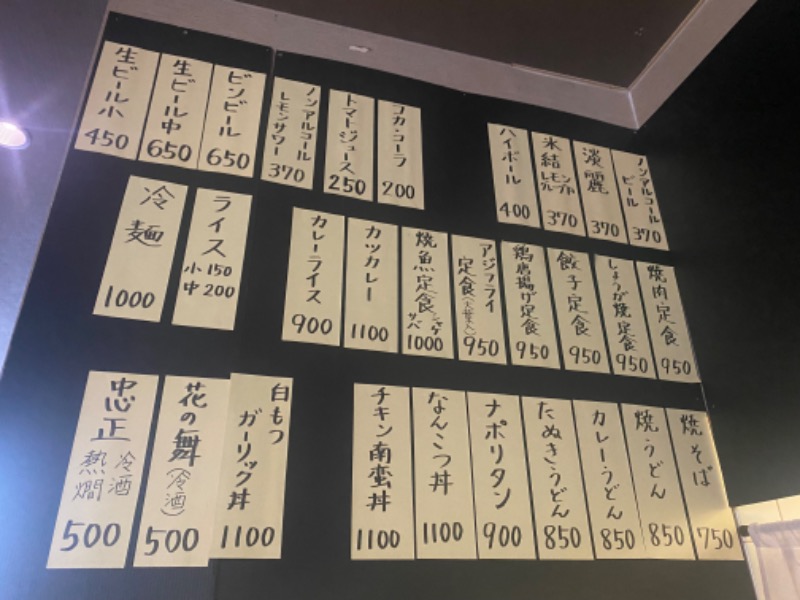 ノンアルコール
ビール
370
淡麗
370
氷結レモン
370
ハイボール
400
コカ・コーラ
200
トマトジュース
250
ノンアルコール
レモンサワー
370
ビンビール
650
生ビール中
650
生ビール小
450
焼肉定食
950
しょうが焼定食
950
餃子定食
950
鶏唐揚げ定食
950
アジフライ
定食(大葉入)
950
焼魚定食
シャケ
サバ
1000
カツカレー
1100
カレーライス
900
ライス
小150
中200
冷麺
1000
焼そば
750
焼うどん
850
カレーうどん
850
たぬきうどん
850
ナポリタン
900
なんこつ丼
1100
チキン南蛮丼
1100
白もつ
ガーリック丼
1100
花の舞
(冷酒)
500
忠正
冷酒
熱燗
500